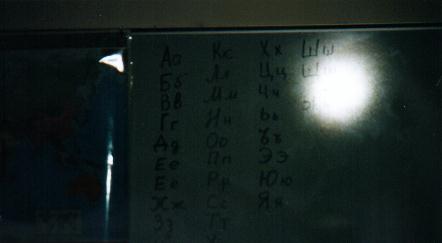 Аа
Бб
Вв
Гг
Дд
Ее
Ее
Жж
Зз
Кк
Лл
Мм
Нн
Оо
Пп
Рр
Сс
Тт
Хх
Цц
Чч
Ьь
Ъъ
Ээ
Юю
Яя
Шш